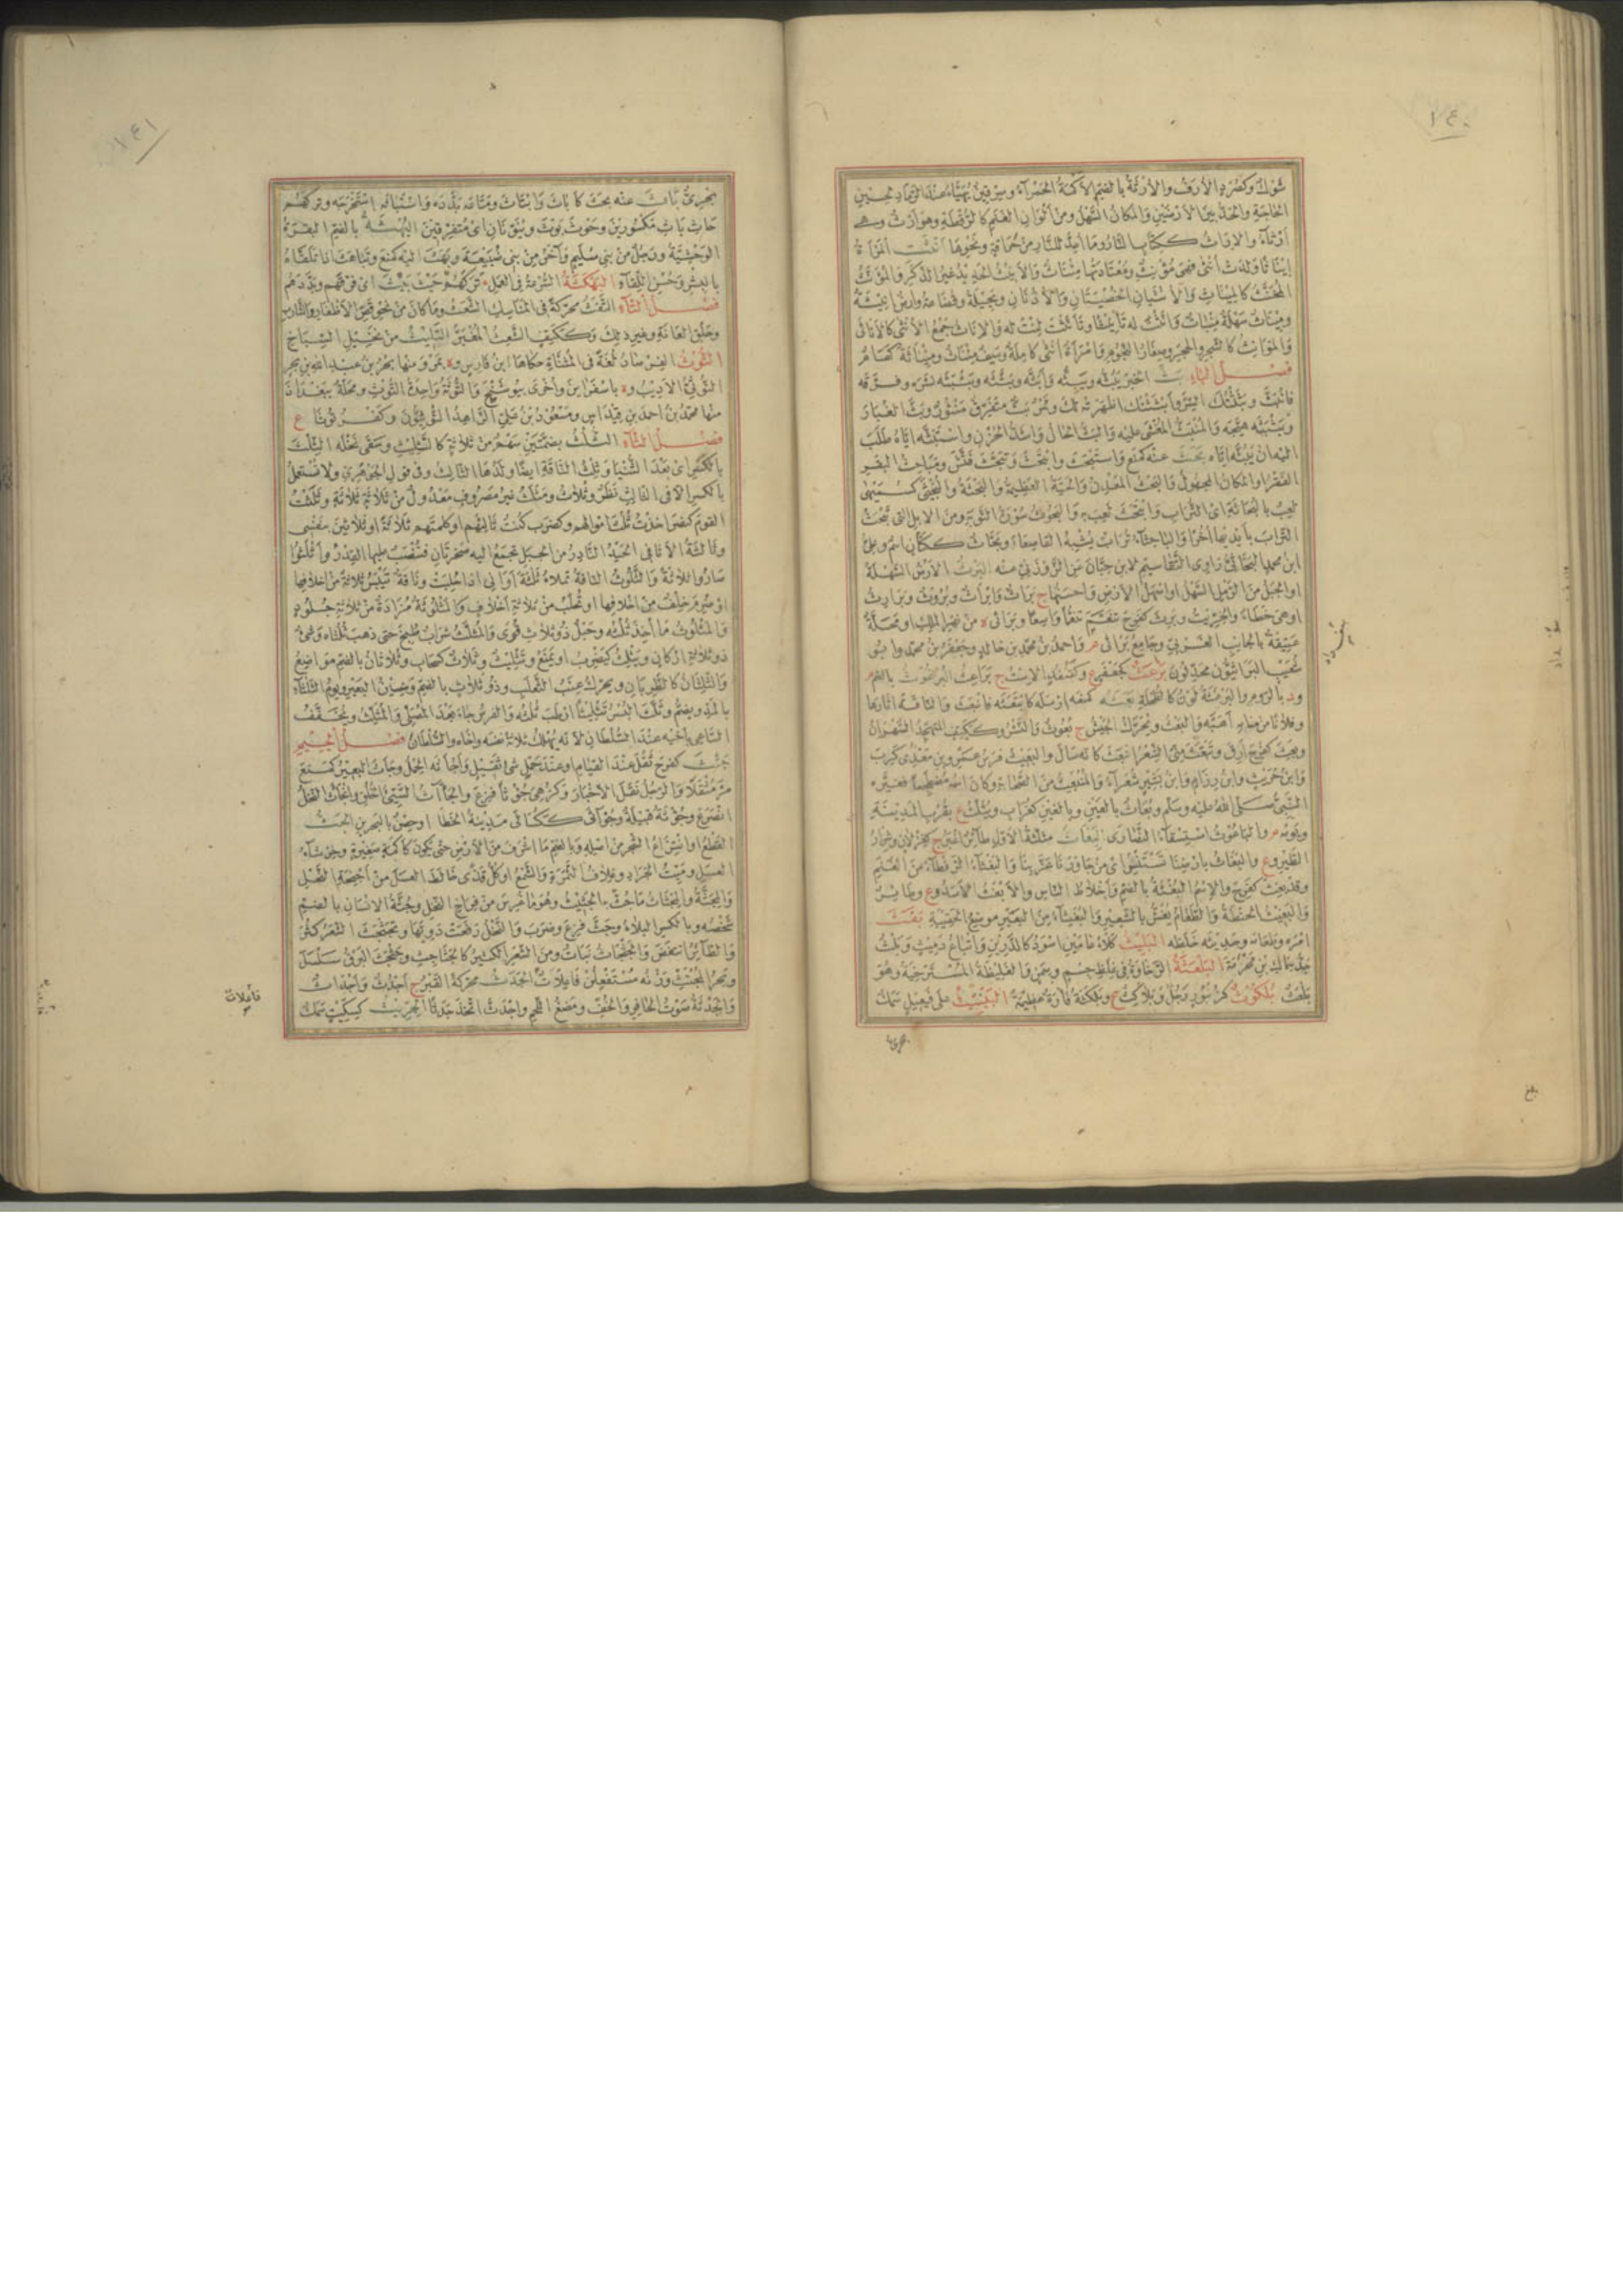 ١٤٠
شوك وكصرد الأرف والأرثة بالضم الأكمة الحمراء وسرقين يهيأ عند الرماد لحين
الحاجة والحد بين الأرضين والمكان السهل ومن ألوان الغنم كالرقطة وهو آرث وهي
أرثاء والإراث ككتاب النار وما أعد للنار من حراقة ونحوها أنثت المرأة
إيناثا ولدت أنثى فهي مؤنث ومعتادتها مئناث والأنيث الحديد غير الذكر والمؤنث
المخنث كالمئناث والأنثيان الخصيتان والأذنان وبجيلة وقضاعة وأرض أنيثة
ومئناث سهلة منبات وأنثت له تأنيثا وتأنثت لنت له والإناث جمع الأنثى كالأناثى
والموات كالشجر والحجر وصغار النجوم وامرأة أنثى كاملة وسيف مئناث ومئناثة كهام
فصل الباء بث الخبر يبثه ويبثه وأبثه وبثثه وبثبثه نشره وفرقه
فانبث وبثثتك السر وأبثثتك أظهرته لك وتمر بث متفرق منثور وبث الغبار
وبثبثه هيجه والمنبث المغشى عليه والبث الحال وأشد الحزن واستبثه إياه طلب
إليه أن يبثه إياه بحث عنه كمنع واستبحث وابتحث وتبحث فتش ومباحث البقر
القفر أو المكان المجهول والبحث المعدن والحية العظيمة والبحثة والبحيثى كسميهى
لعب بالبحاثة أي التراب وابتحث لعب به والبحوث سورة التوبة ومن الإبل التي تبحث
التراب بأيديها أخرا والباحثاء تراب يشبه القاصعاء وبحاث ككتان اسم وعلي
ابن محمد البحاثي راوي التقاسيم لابن حبان عن الزوزني عنه البرث الأرض السهلة
أو الجبل من الرمل السهل أو أسهل الأرض وأحسنها ج براث وأبراث وبروث وبراريث
أو هي خطأ والخريت وبرث كفرح تنعم تنعما واسعا وبراثى ة من نهر الملك أو محلة
عتيقة بالجانب الغربي وجامع براثى م وأحمد بن محمد بن خالد وجعفر بن محمد وأبو
شعيب البراثيون محدثون برعث كجعفر ع وكقنفذ الاست ج براعث البرغوث بالضم م
ود بالروم والبرغثة لون كالطحلة بعثه كمنعه أرسله كابتعثه فانبعث والناقة أثارها
وفلانا من منامه أهبه والبعث ويحرك الجيش ج بعوث والنشر وككتف المتهجد السهران
وبعث كفرح أرق وتبعث مني الشعر انبعث كأنه سال والبعيث فرس عمرو بن معدي كرب
وابن حريث وابن رزام وابن بشير شعراء والمنبعث من الصحابة وكان اسمه مضطجعا فغيره
النبي صلى الله عليه وسلم وبعاث بالعين وبالغين كغراب ويثلث ع بقرب المدينة
ويومه م والباعوث استسقاء النصارى البغاث مثلثة الأول طائر أغبر ج كغزلان وشرار
الطير وع والبغاث بأرضنا تستنسر أي من جاورنا عز بنا والبغثاء الرقطاء من الغنم
وقد بغث كفرح والاسم البغثة بالضم وأخلاط الناس والأبغث الأسد وع وطائر
والبغيث الحنطة والطعام يغش بالشعير والبغثاء من البعير موضع الحقيبة بقث
أمره وطعامه وحديثه خلطه البليث كلأ عامين أسود كالدرين وإتباع دميث وبلث
جد سماك بن مخرمة البلعثة الرخاوة في غلظ جسم وسمن والغليظة المسترخية وهو
بلعث بلكوث كزنبور رجل وبلاكث ع وبلكثة قارة عظيمة البينيث على فيعيل سمك
بحري
بلغ
١٤١
بحري باث عنه بحث كأباث وابتاث ومتاعه بدده واستباثه استخرجه وتركهم
حاث باث مكسورين وحوث بوث وينونان أي متفرقين البهثة بالضم البقرة
الوحشية ورجل من بني سليم وآخر من بني ضبيعة وبهث إليه كمنع وتباهث إذا تلقاه
بالبشر وحسن اللقاء البهكثة السرعة في العمل تركهم حيث بيث أي فرقهم وبددهم
فصل التاء التفث محركة في المناسك الشعث وما كان من نحو قص الأظفار والشارب
وحلق العانة وغير ذلك وككتف الشعث المغبر التليث من نجيل السباخ
التوث الفرصاد لغة في المثناة حكاها ابن فارس وة بمرو منها بحر بن عبد الله بن بحر
التوثي الأديب وة بإسفراين وأخرى ببوشنج والتوثة واحدة التوث ومحلة ببغداذ
منها محمد بن أحمد بن قيداس ومسعود بن علي الزاهد التوثيون وكفر توثا ع
فصل الثاء الثلث بضمتين سهم من ثلاثة كالثليث وسقى نخله الثلث
بالكسر أي بعد الثنيا وثلث الناقة أيضا ولدها الثالث وفي قول الجوهري ولا تستعمل
بالكسر إلا في الأول نظر وثلاث ومثلث غير مصروف معدول من ثلاثة ثلاثة وثلثت
القوم كنصر أخذت ثلث أموالهم وكضرب كنت ثالثهم أو كملتهم ثلاثة أو ثلاثين بنفسي
وثالثة الأثافي الحيد النادر من الجبل يجمع إليه صخرتان فتنصب عليها القدر وأثلثوا
صاروا ثلاثة والثلوث الناقة تملأ ثلاثة أواني إذا حلبت وناقة تيبس ثلاثة من أخلافها
أو صرم خلف من أخلافها أو تحلب من ثلاثة أخلاف والمثلوثة مزادة من ثلاثة جلود
والمثلوث ما أخذ ثلثه وحبل ذو ثلاث قوى والمثلث شراب طبخ حتى ذهب ثلثاه وشيء
ذو ثلاثة أركان ويثلث كيضرب أو يمنع وتثليث وثلاث كسحاب وثلاثان بالضم مواضع
والثلثان كالظربان ويحرك عنب الثعلب وذو ثلاث بالضم وضين البعير ويوم الثلثاء
بالمد ويضم وثلث البسر تثليثا أرطب ثلثه والفرس جاء بعد المصلي والمثلث ويخفف
الساعي بأخيه عند السلطان لأنه يهلك ثلاثة نفسه وأخاه والسلطان فصل الجيم
جئث كفرح ثقل عند القيام أو عند حمل شيء ثقيل وأجأثه الحمل وجأث البعير كمنع
مر مثقلا والرجل نقل الأخبار وكزهي جؤوثا فزع والجآث السيئ الخلق وانجأث النخل
انصرع وجؤثة قبيلة وجؤاثى مدينة الخط أو حصن بالبحرين الجث
القطع أو انتزاع الشجر من أصله وبالضم ما أشرف من الأرض حتى يكون كأكمة صغيرة وخرشاء
العسل وميت الجراد وغلاف الثمرة والشمع أو كل قذى خالط العسل من أجنحة النحل
والمجثة والمجثاث ما جث به الجثيث وهو ما غرس من فراخ النخل وجثة الإنسان بالضم
شخصه وبالكسر البلاء وجث فزع وضرب والنحل رفعت دويها وتجثجث الشعر كثر
والطائر انتفض والجثجاث نبات ومن الشعر الكثير كالجثاجث وجثجث البرق سلسل
وبحر المجتث وزنه مستفعلن فاعلاتن الجدث محركة القبر ج أجدث وأجداث
والجدثة صوت الحافر والخف ومضغ اللحم واجتدث اتخذ جدثا الجريث كسكيت سمك